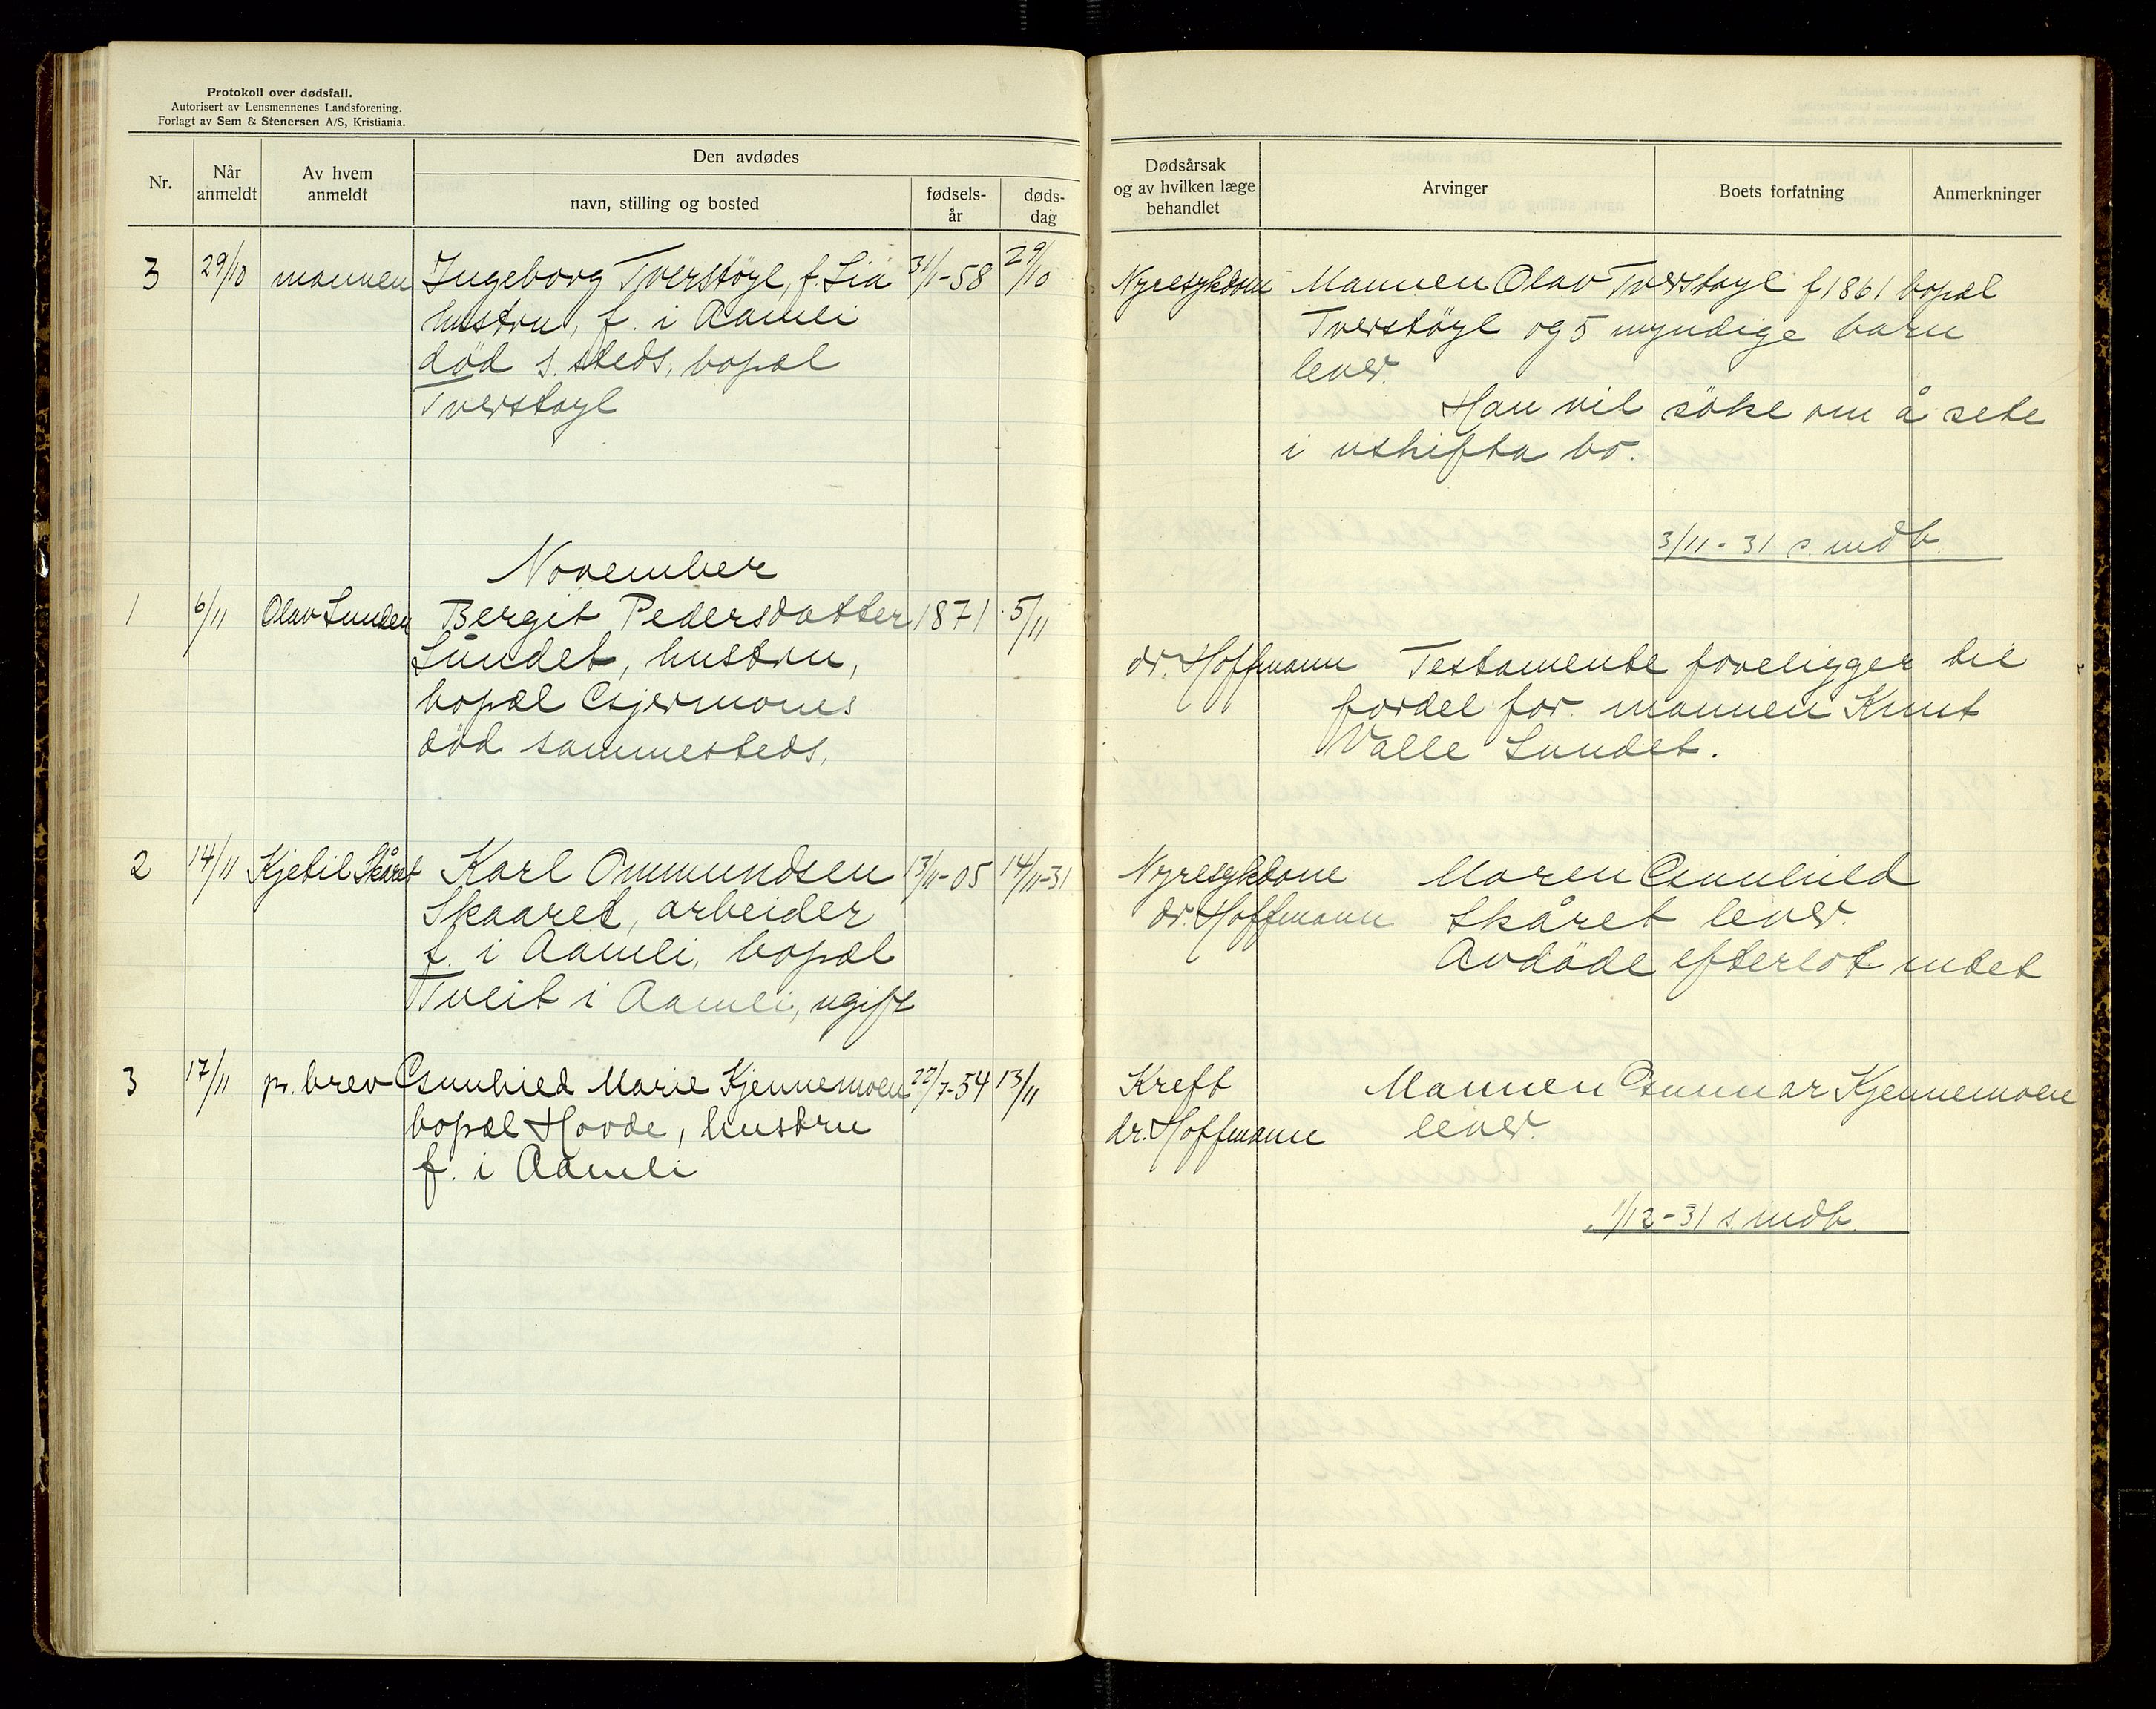 Protokoll over dødsfall.
Autorisert av Lensmennenes Landsforening.
Forlagt av Sem & Stenersen A/S, Kristiania.
Nr.
Når
anmeldt
Av hvem
anmeldt
Den avdødes
navn, stilling og bosted
fødsels-
år
døds-
dag
3 29/10 mannen Ingeborg Tverstöyl, f. Lia 31/1-58 29/10
hustru, f. i Aamli
död s. steds, bopæl
Tverstøyl
November
1 6/11 Olav Sunden Bergit Pedersdatter 1871 5/11
Sundet, hustru,
bopæl Gjermones
död sammesteds,
2 14/11 Kjetil Skåret Karl Ommundsen 13/11-05 14/11-31
Skaaret, arbeider
f. i Aamli, bopæl
Tveit i Aamli, ugift
3 17/11 pr. brev Gunhild Marie Kjennemoen 22/7-54 13/11
bopæl Hovde, hustru
f. i Aamli
Dødsårsak
og av hvilken læge
behandlet
Arvinger
Boets forfatning
Anmerkninger
Nyresykdom Mannen Olav Tverstøyl f 1861 bopæl
Tverstöyl og 5 myndige barn
lever.
Han vil söke om å sete
i uskifta bo.
3/11-31 s. mdb.
dr. Hoffmann Testamente foreligger til
fordel for mannen Knut
Valle Sundet.
Nyresykdom Moren Gunhild
dr. Hoffmann Skåret lever.
Avdöde efterlot intet
Kreft Mannen Gunnar Kjennemoen
dr. Hoffmann lever.
1/12-31 s. mdb.